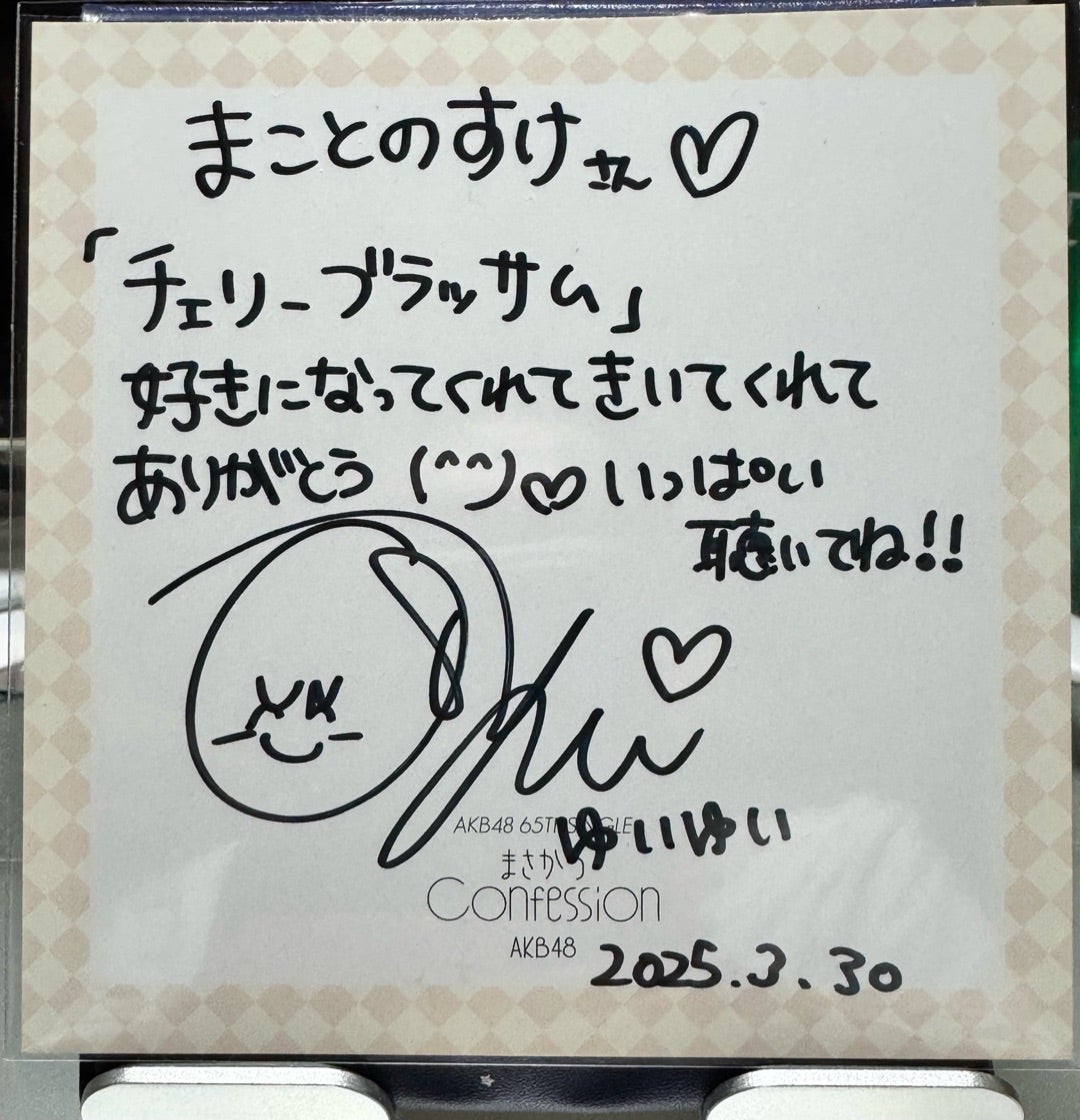 まことのすけさん♡
「チェリーブラッサム」
好きになってくれてきいてくれて
ありがとう(^^)♡いっぱい
聴いてね!!
ゆいゆい
AKB48 65TH SINGLE
まさかの
Confession
AKB48
2025.3.30